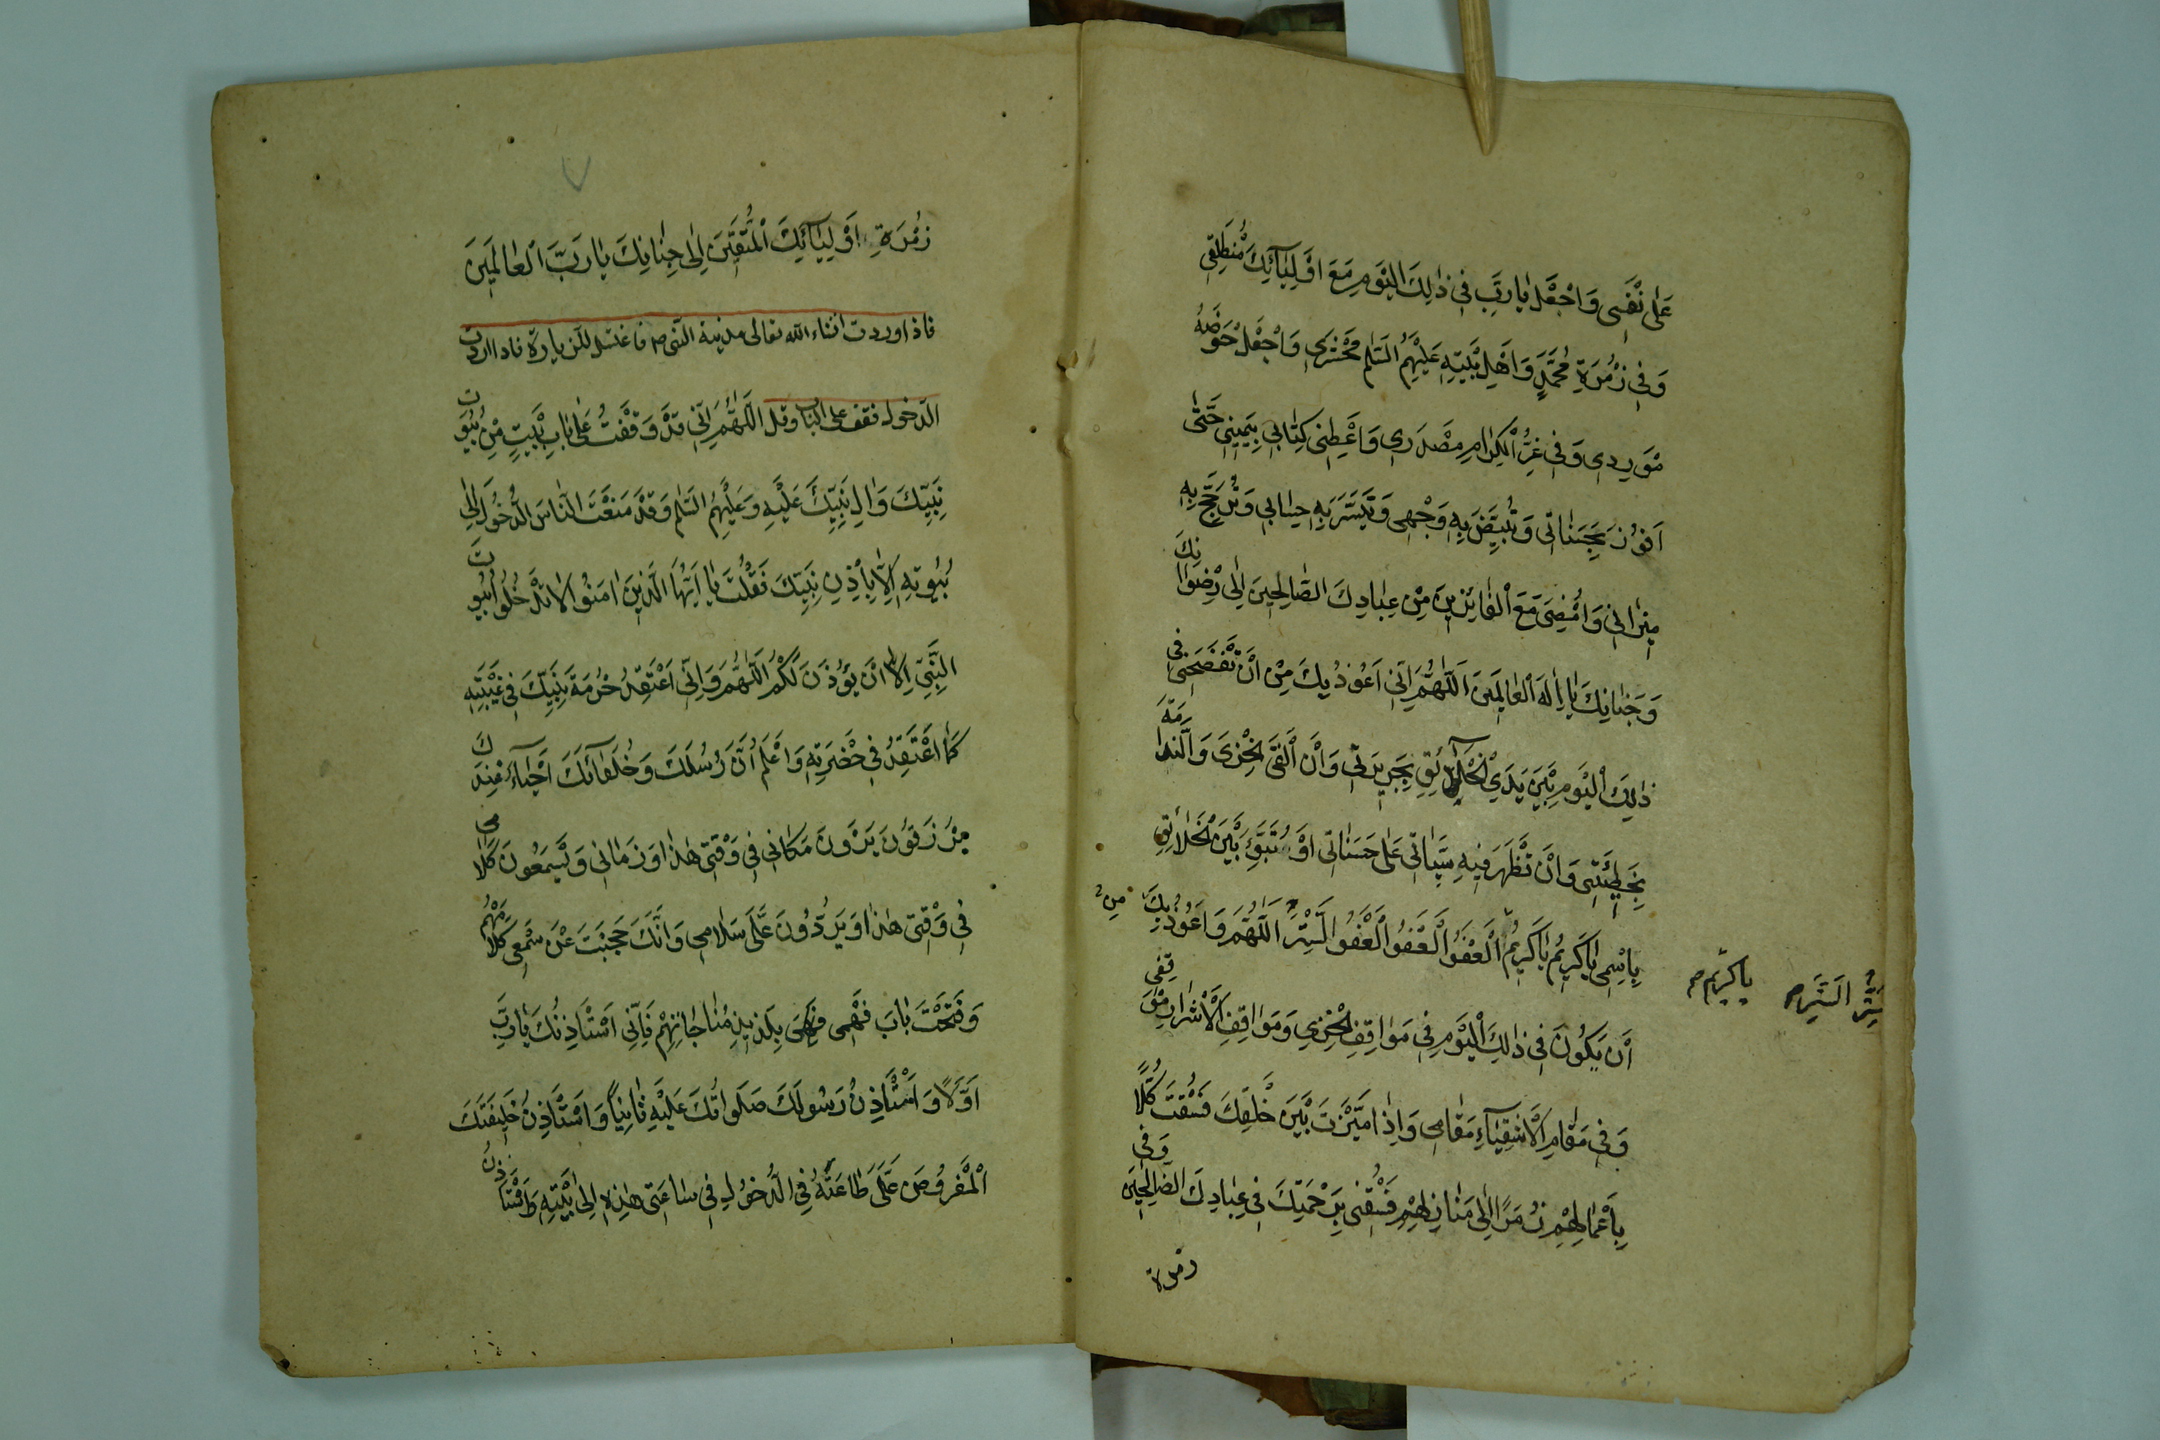 عَلىٰ نَفْسِى وَاجْعَلْ يٰا رَبِّ فِى ذٰلِكَ الْيَوْمِ مَعَ اَوْلِيٰآئِكَ مُنْطَلِقِى
وَفِى زُمْرَةِ مُحَمَّدٍ وَاَهْلِ بَيْتِهِ عَلَيْهِمُ السَّلٰمُ مَحْشَرِى وَاجْعَلْ حَوْضَهُ
مَوْرِدِى وَفِى غُرِّ الْكِرٰامِ مَصْدَرِى وَاَعْطِنِى كِتٰابِى بِيَمِينِى حَتّٰى
اَفُوزَ بِحَسَنٰاتِى وَتُبَيِّضَ بِهِ وَجْهِى وَتُيَسِّرَ بِهِ حِسٰابِى وَتُرَجِّحَ بِهِ
مِيزٰانِى وَاَمْضِىَ مَعَ الْفٰائِزِينَ مِنْ عِبٰادِكَ الصّٰالِحِينَ اِلٰى رِضْوٰانِكَ
وَجِنٰانِكَ يٰا اِلٰهَ الْعٰالَمِينَ اَللّٰهُمَّ اِنِّى اَعُوذُ بِكَ مِنْ اَنْ تَفْضَحَنِى فِى
ذٰلِكَ الْيَوْمِ بَيْنَ يَدَىِ الْخَلٰآئِقِ بِجَرِيرَتِى وَاَنْ اَلْقَى الْخِزْىَ وَالنَّدٰامَةَ
بِخَطِيئَتِى وَاَنْ تُظْهِرَ فِيهِ سَيِّئٰاتِى عَلىٰ حَسَنٰاتِى اَوْ تُنَوِّهَ بَيْنَ الْخَلٰائِقِ
بِاسْمِى يٰا كَرِيمُ يٰا كَرِيمُ الْعَفْوَ الْعَفْوَ الْعَفْوَ السَّتْرَ اَللّٰهُمَّ وَاَعُوذُ بِكَ مِنْ
يا كريم
السَّتْرَ
اَنْ يَكُونَ فِى ذٰلِكَ الْيَوْمِ فِى مَوٰاقِفِ الْخِزْىِ وَمَوٰاقِفِ الْاَشْرٰارِ مَوْقِفِى
وَفِى مَقٰامِ الْاَشْقِيٰآءِ مَقٰامِى وَاِذٰا مَيَّزْتَ بَيْنَ خَلْقِكَ فَسُقْتَ كُلًّا
بِاَعْمٰالِهِمْ زُمَرًا اِلٰى مَنٰازِلِهِمْ فَسُقْنِى بِرَحْمَتِكَ فِى عِبٰادِكَ الصّٰالِحِينَ وَفِى
زمرة
زُمْرَةِ اَوْلِيٰآئِكَ الْمُتَّقِينَ اِلٰى جِنٰانِكَ يٰا رَبَّ الْعٰالَمِينَ
فاذا وردت انشاء الله تعالى مدينة النبى ص فاغتسل للزيارة فاذا اردت
الدخول فقف على الباب وقل اَللّٰهُمَّ اِنِّى قَدْ وَقَفْتُ عَلىٰ بٰابِ بَيْتٍ مِنْ بُيُوتِ
نَبِيِّكَ وَاٰلِ نَبِيِّكَ عَلَيْهِ وَعَلَيْهِمُ السَّلٰمُ وَقَدْ مَنَعْتَ النّٰاسَ الدُّخُولَ اِلٰى
بُيُوتِهِ اِلّٰا بِاِذْنِ نَبِيِّكَ فَقُلْتَ يٰا اَيُّهَا الَّذِينَ اٰمَنُوا لٰا تَدْخُلُوا بُيُوتَ
النَّبِىِّ اِلّٰا اَنْ يُؤْذَنَ لَكُمْ اَللّٰهُمَّ وَاِنِّى اَعْتَقِدُ حُرْمَةَ نَبِيِّكَ فِى غَيْبَتِهِ
كَمٰا اَعْتَقِدُ فِى حَضْرَتِهِ وَاَعْلَمُ اَنَّ رُسُلَكَ وَخُلَفٰآئَكَ اَحْيٰآءٌ عِنْدَكَ
يُرْزَقُونَ يَرَوْنَ مَكٰانِى فِى وَقْتِى هٰذٰا وَزَمٰانِى وَيَسْمَعُونَ كَلٰامِى
فِى وَقْتِى هٰذٰا وَيَرُدُّونَ عَلَىَّ سَلٰامِى وَاَنَّكَ حَجَبْتَ عَنْ سَمْعِى كَلٰامَهُمْ
وَفَتَحْتَ بٰابَ فَهْمِى بِلَذِيذِ مُنٰاجٰاتِهِمْ فَاِنِّى اَسْتَاْذِنُكَ يٰا رَبِّ
اَوَّلًا وَاَسْتَاْذِنُ رَسُولَكَ صَلَوٰاتُكَ عَلَيْهِ ثٰانِيًا وَاَسْتَاْذِنُ خَلِيفَتَكَ
الْمَفْرُوضَ عَلَىَّ طٰاعَتُهُ فِى الدُّخُولِ فِى سٰاعَتِى هٰذِهِ اِلٰى بَيْتِهِ وَاَسْتَاْذِنُ